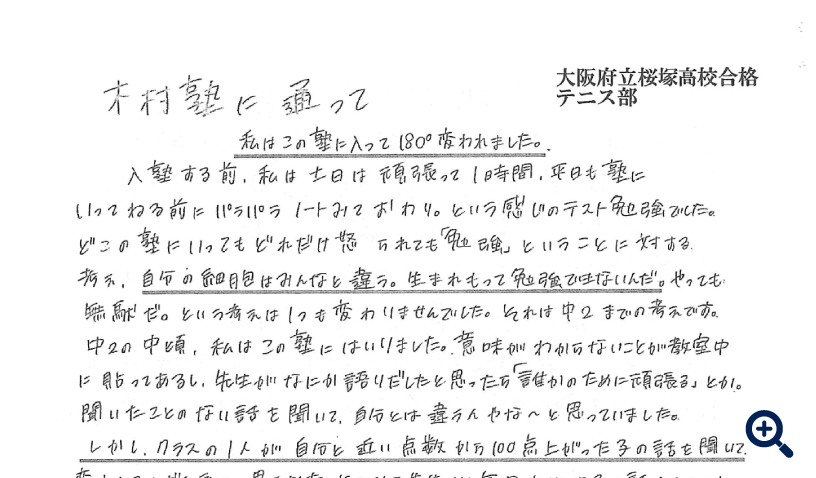 大阪府立桜塚高校合格
テニス部
木村塾に通って
私はこの塾に入って180°変われました。
入塾する前、私は土日は頑張って1時間、平日も塾に
いってねる前にパラパラノートみておわり。という感じのテスト勉強でした。
どこの塾にいってもどれだけ怒られても「勉強」ということに対する
考え、自分の細胞はみんなと違う。生まれもって勉強できないんだ。やっても
無駄だ。という考えは1つも変わりませんでした。それは中2までの考えです。
中2の中頃、私はこの塾にはいりました。意味がわからないことが教室中
に貼ってあるし、先生がなにか語りだしたと思ったら「誰かのために頑張る」とか。
聞いたことのない話を聞いて、自分とは違うんやな〜と思っていました。
しかし、クラスの1人が自分と近い点数から100点上がった子の話を聞いて、